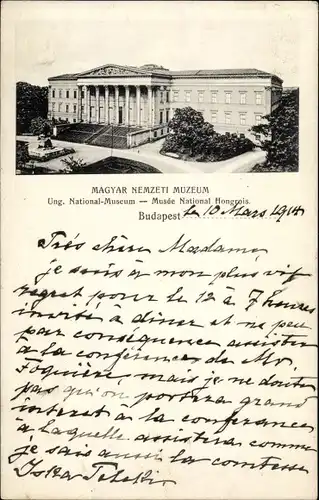 MAGYAR NEMZETI MUZEUM
Ung. National-Museum — Musée National Hongrois.
Budapest le 10 Mars 1914
Très chère Madame,
je suis à mon plus vif
regret pour le 12 à 7 heures
invité à diner et ne peu
par conséquence assister
a la conférence de Mr.
mais je ne doute
pas qu'on portera grand
interet à la conferance
a laquelle assistera comme
je sais aussi la comtesse
Teleki